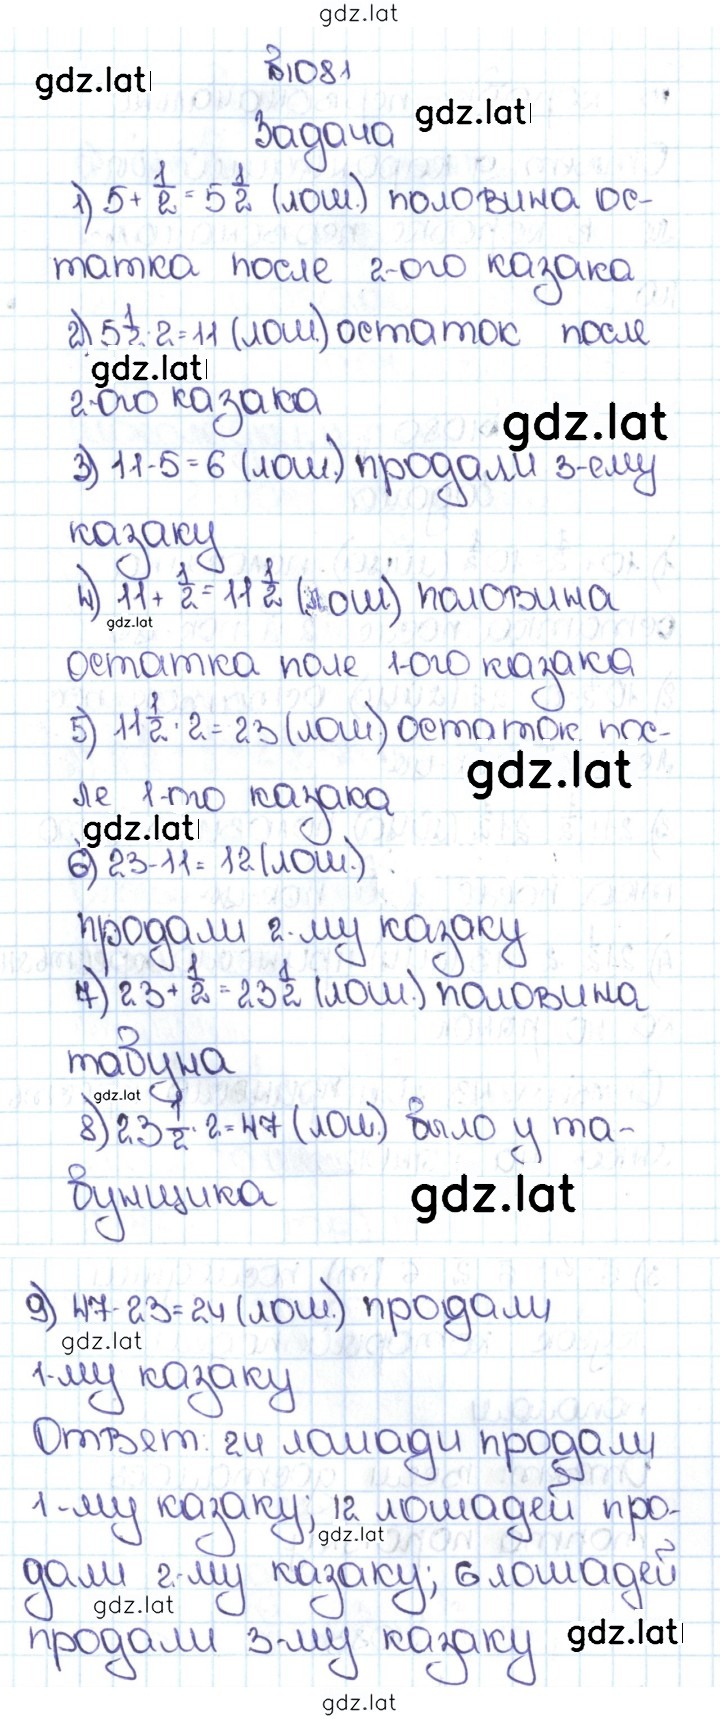 gdz.lat
№1081
gdz.lat
Задача
gdz.lat
1) 5 + 1/2 = 5 1/2 (лош.) половина ос-
татка после 2-ого казака
2) 5 1/2 · 2 = 11 (лош.) остаток после
gdz.lat
2-ого казака
gdz.lat
3) 11 - 5 = 6 (лош.) продали 3-ему
казаку
4) 11 + 1/2 = 11 1/2 (лош) половина
gdz.lat
остатка поле 1-ого казака
5) 11 1/2 · 2 = 23 (лош.) остаток пос-
gdz.lat
ле 1-го казака
gdz.lat
6) 23 - 11 = 12 (лош.)
продали 2-му казаку
7) 23 + 1/2 = 23 1/2 (лош.) половина
табуна
gdz.lat
8) 23 1/2 · 2 = 47 (лош.) было у та-
бунщика
gdz.lat
9) 47 - 23 = 24 (лош.) продали
gdz.lat
1-му казаку
Ответ: 24 лошади продали
1-му казаку; 12 лошадей про-
gdz.lat
дали 2-му казаку; 6 лошадей
gdz.lat
продали 3-му казаку
gdz.lat
gdz.lat